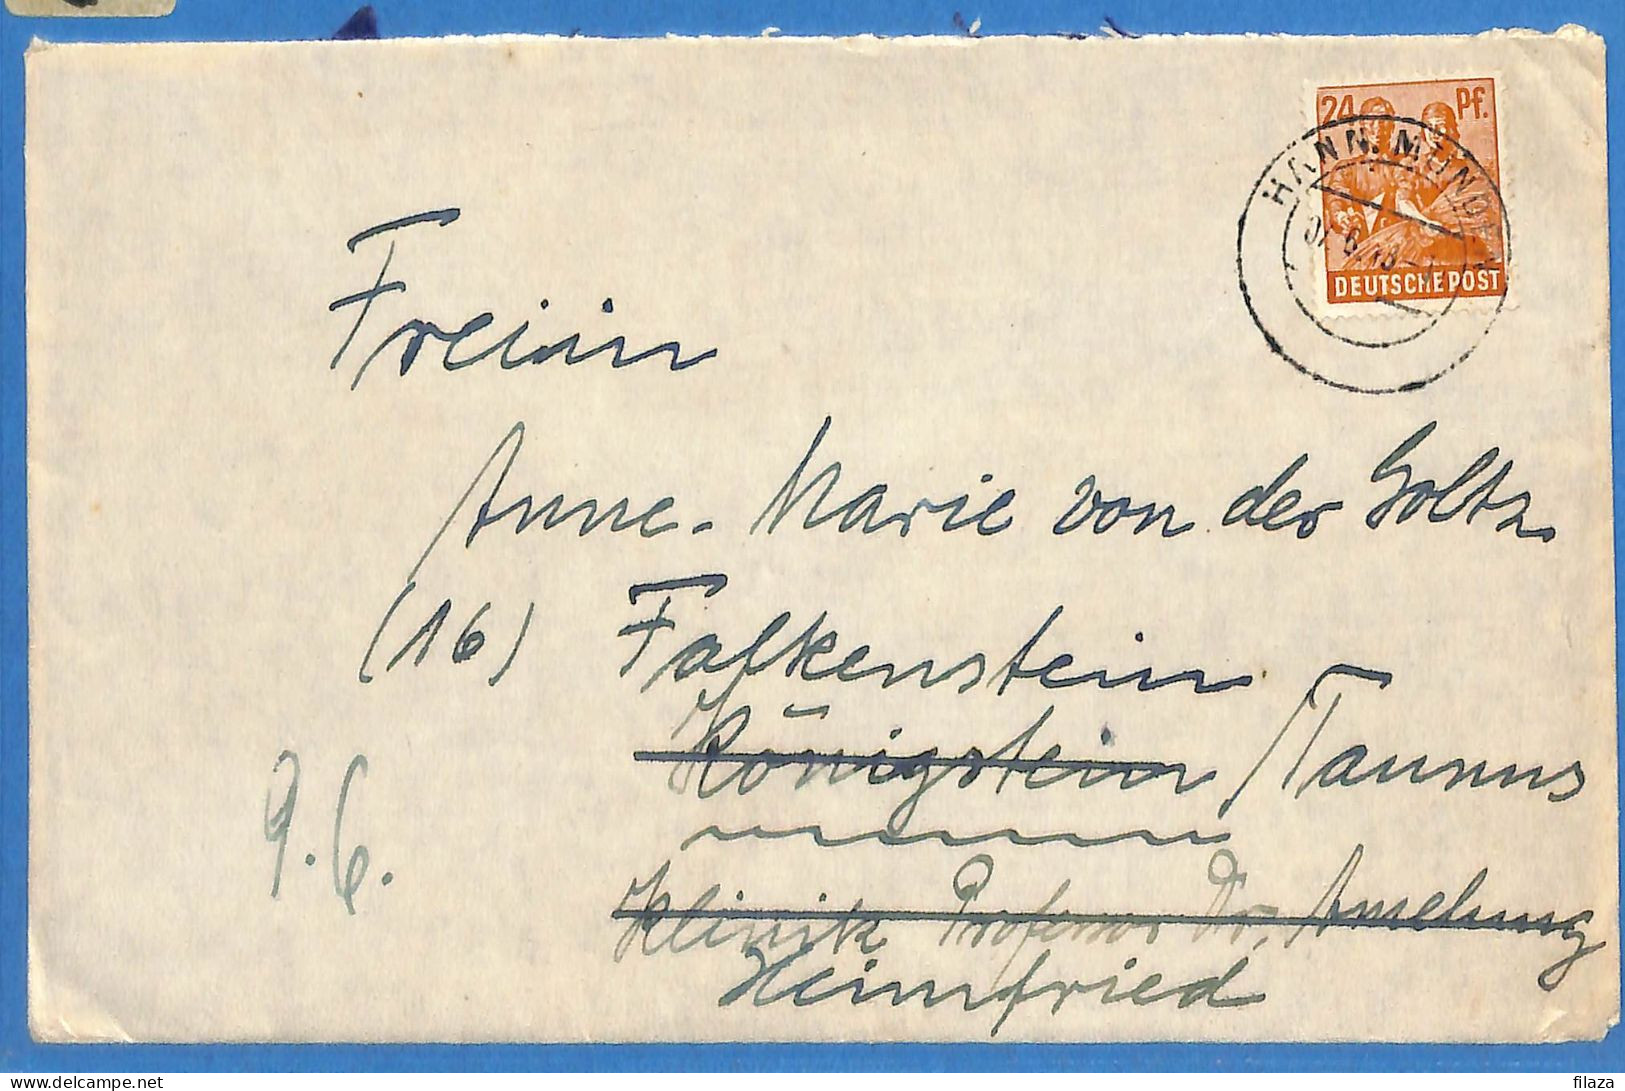 24 Pf.
HANN. MÜNDEN
DEUTSCHE POST
Freiin
Anne-Marie von der Goltz
(16) Falkenstein
Königstein /Taunus
9.6.
Klinik Professor Dr. Amelung
Heimfried
filaza